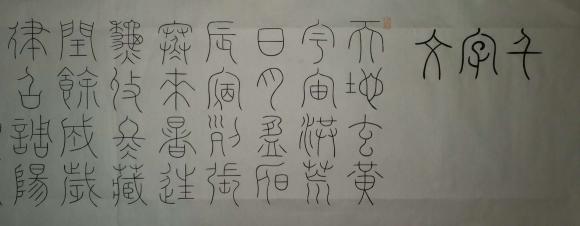 千字文
天地玄黃
宇宙洪荒
日月盈昃
辰宿列張
寒來暑往
秋收冬藏
閏餘成歲
律召調陽